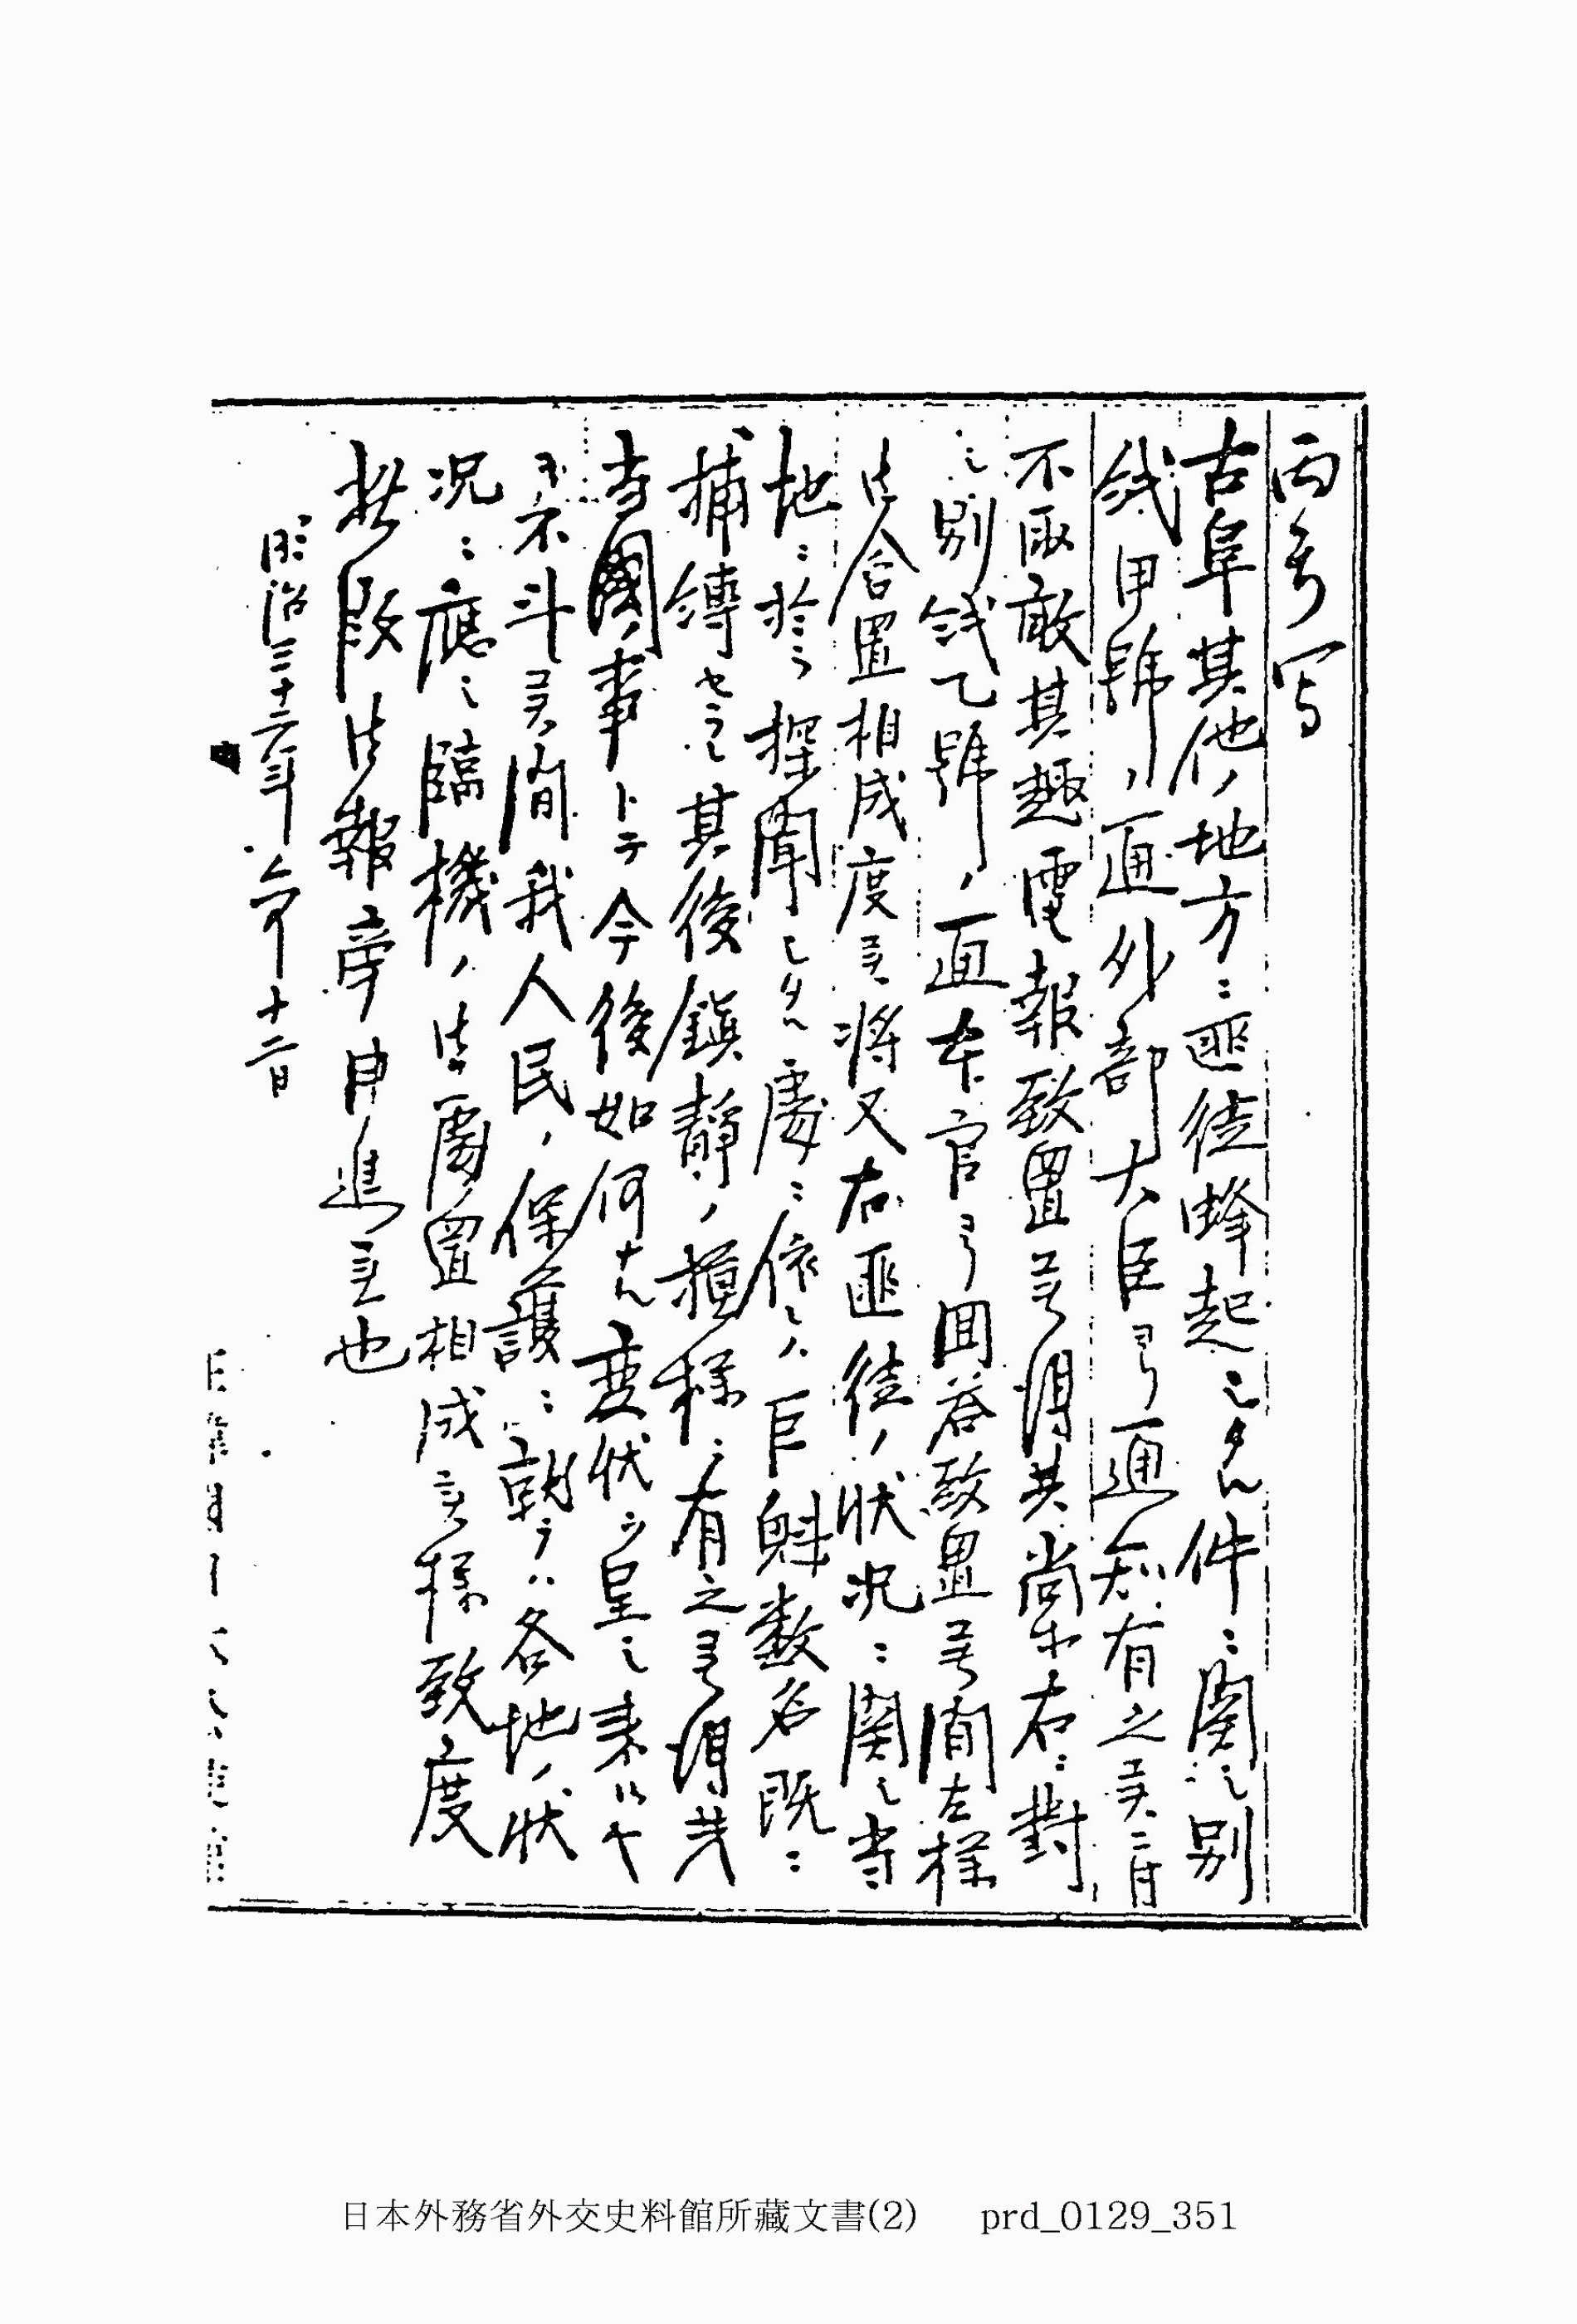 丙号写
古阜其他ノ地方ニ匪徒蜂起シタル件ニ関シ別
紙甲號ノ通外部大臣ヨリ通知有之候ニ付
不取敢其趣電報致置候得共尚ホ右ニ對
シ別紙乙號ノ通本官ヨリ回答致置候間左様
御含置相成度候将又右匪徒ノ状況ニ関シ当
地ニ於テ探聞シタル處ニ依レハ巨魁数名既ニ
捕縛セラレ其後鎮静ノ模様ニ有之候得共
当國ノ事トテ今後如何ナル変状ヲ呈シ来ルヤ
モ不斗候間我人民ノ保護ニ就テハ各地ノ状
況ニ應シ臨機ノ御處置相成候様致度
此段御報旁申進候也
明治三十二年六月十二日
日本外務省外交史料館所藏文書(2) prd_0129_351